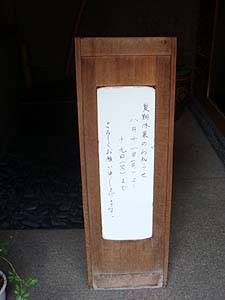 夏期休業のお知らせ
八月十一日(月)より
十九日(火)まで
よろしくお願い申し上げます。